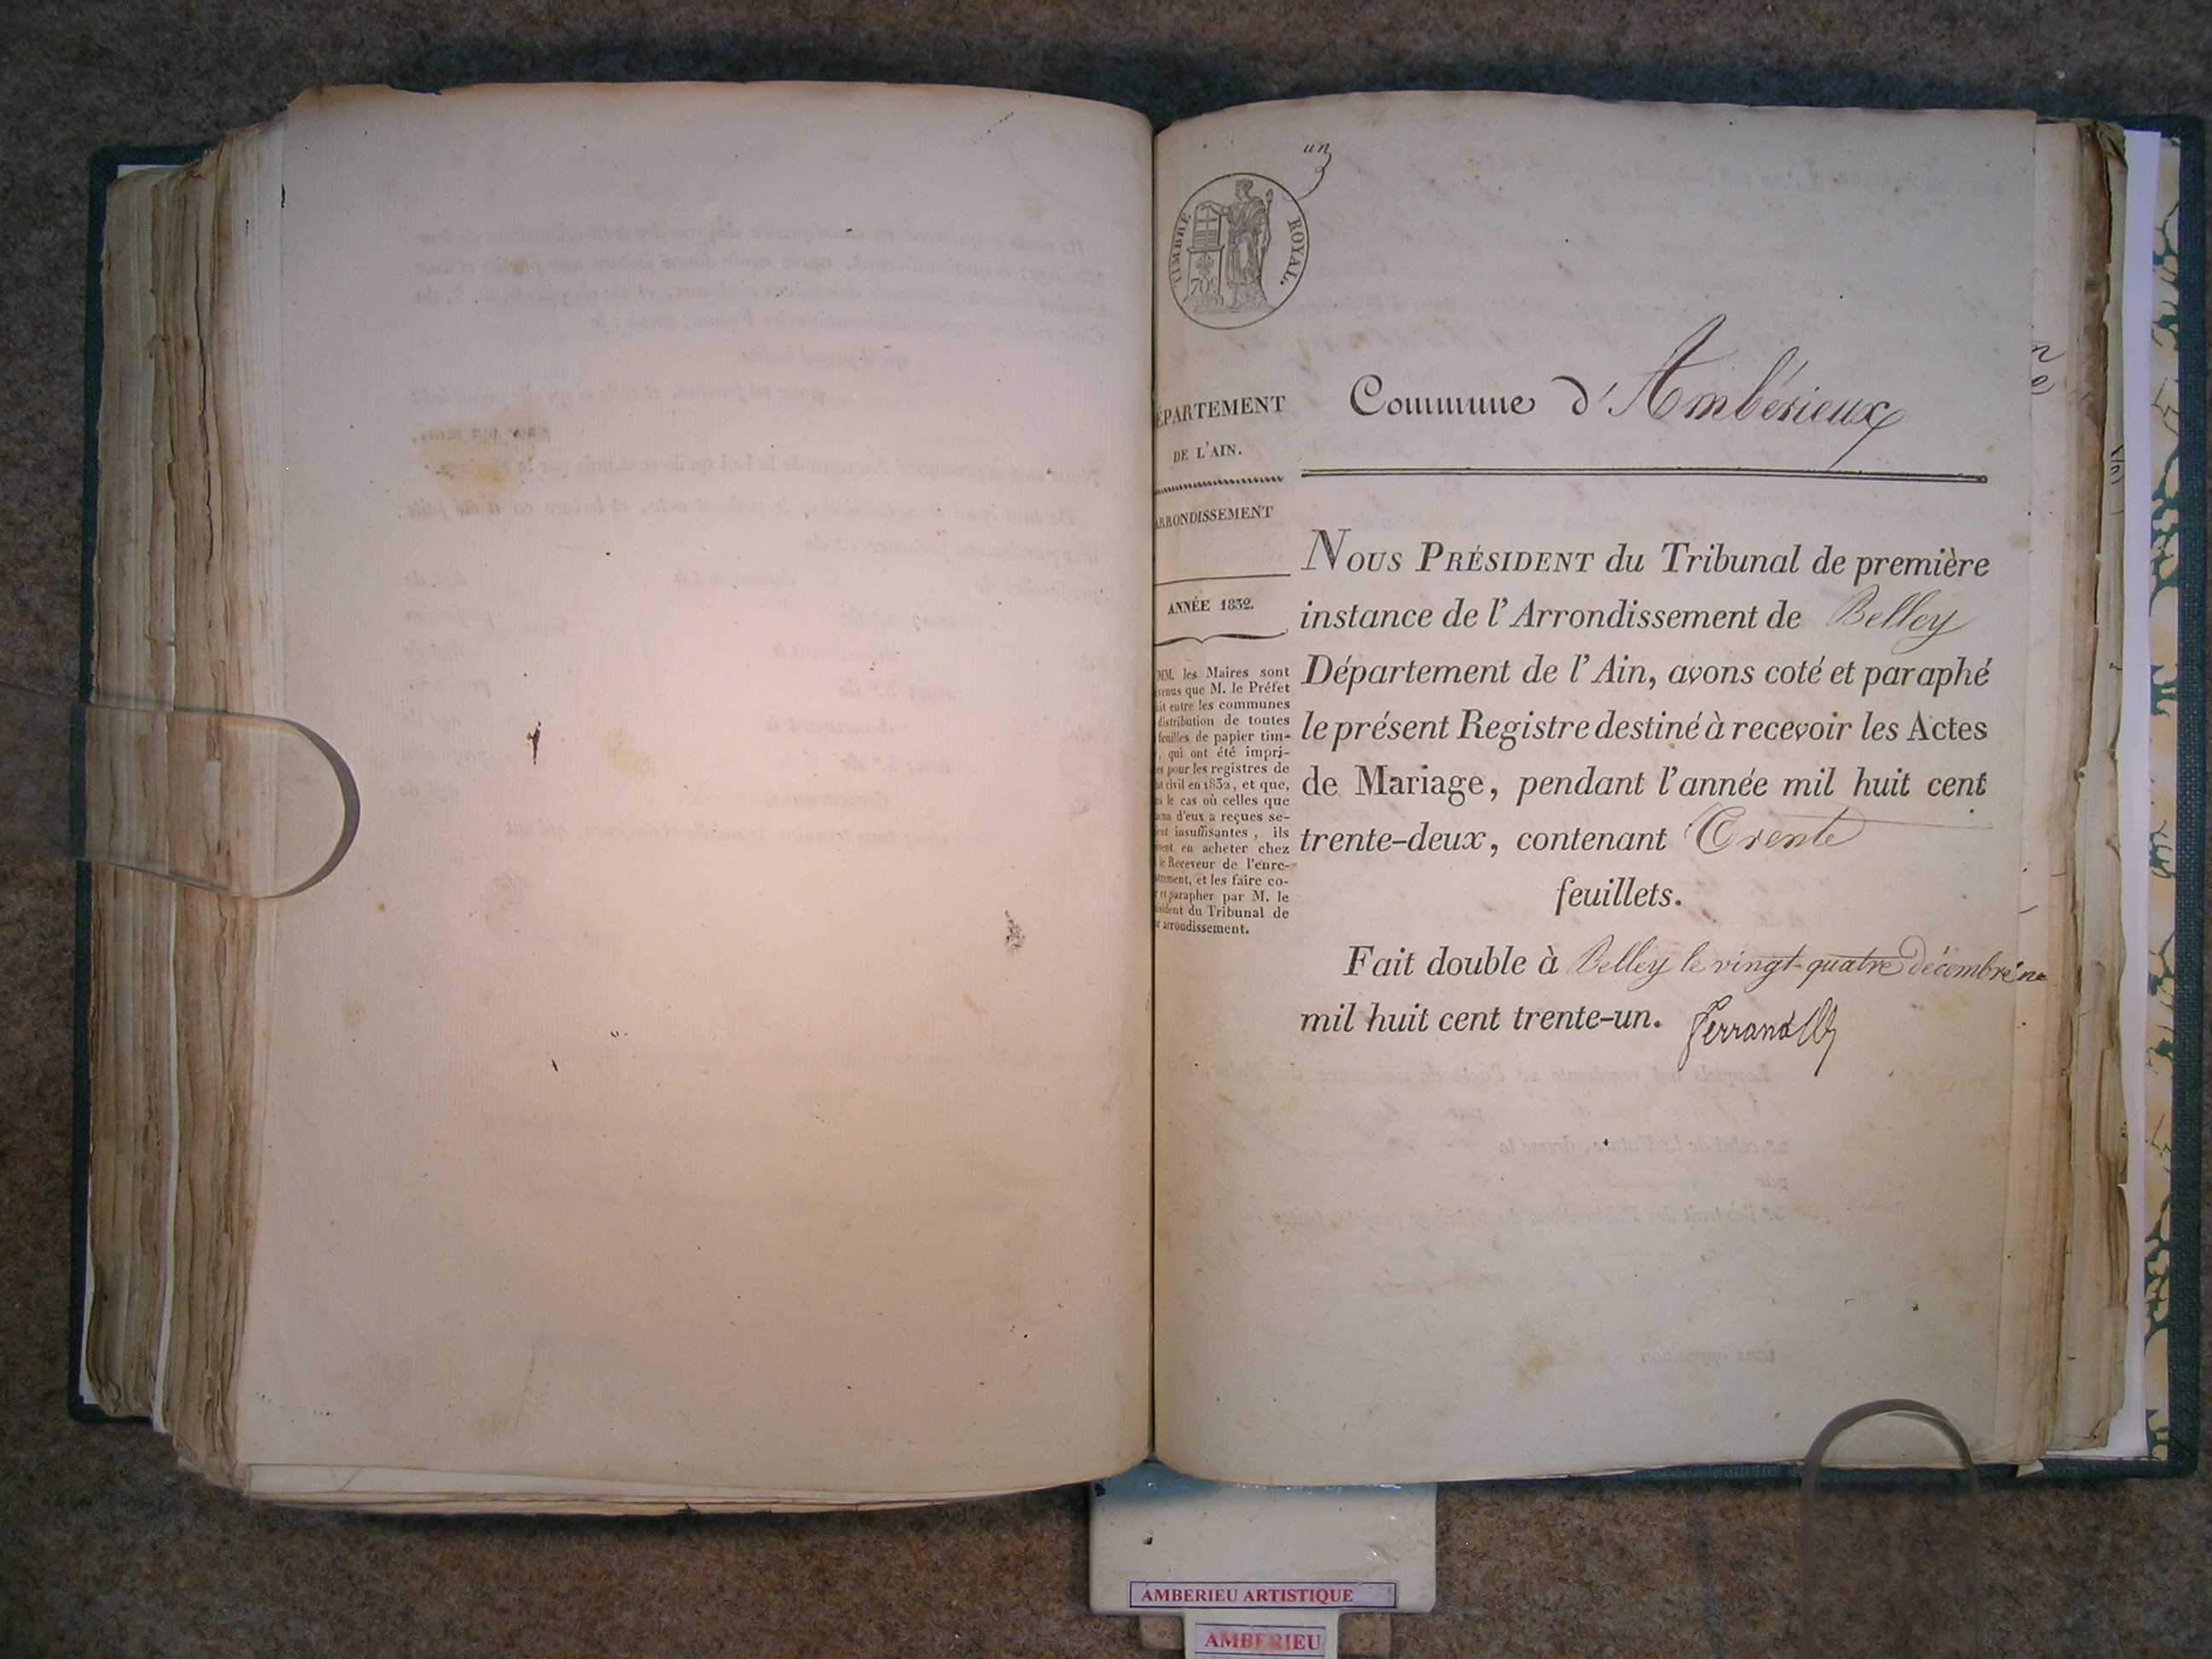 un
TIMBRE ROYAL.
70c
Commune d'Ambérieux
ÉPARTEMENT
DE L'AIN.
ARRONDISSEMENT
ANNÉE 1832.
MM. les Maires sont
venus que M. le Préfet
ait entre les communes
distribution de toutes
feuilles de papier tim-
, qui ont été impri-
es pour les registres de
at civil en 1832, et que,
s le cas où celles que
cun d'eux a reçues se-
ient insuffisantes, ils
vent en acheter chez
le Receveur de l'enre-
trement, et les faire co-
r et parapher par M. le
sident du Tribunal de
r arrondissement.
NOUS PRÉSIDENT du Tribunal de première
instance de l'Arrondissement de Belley
Département de l'Ain, avons coté et paraphé
le présent Registre destiné à recevoir les Actes
de Mariage, pendant l'année mil huit cent
trente-deux, contenant Trente
feuillets.
Fait double à Belley le vingt-quatre décembre
mil huit cent trente-un. Ferrand
AMBERIEU ARTISTIQUE
AMBERIEU